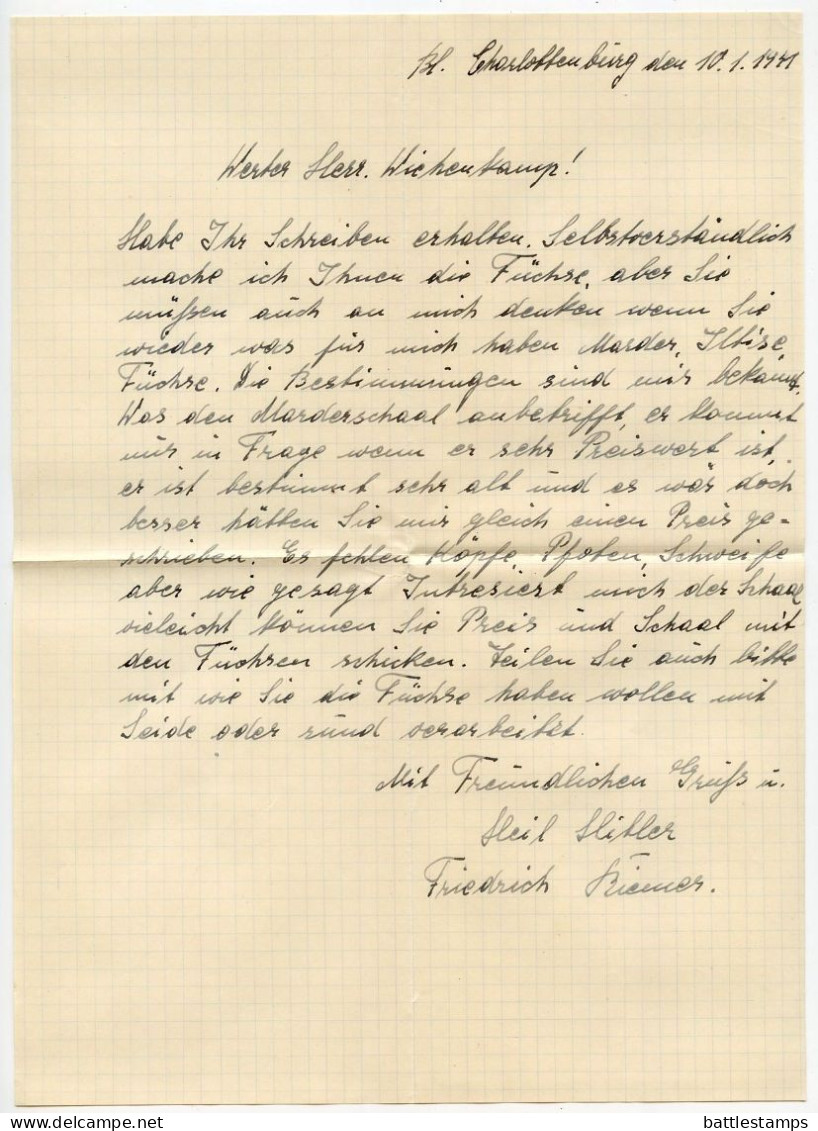 Bl. Charlottenburg den 10.1.1941
Werter Herr. Wiehenkamp!
Habe Ihr Schreiben erhalten. Selbstverständlich
mache ich Ihnen die Füchse, aber Sie
müßen auch an mich denken wenn Sie
wieder was für mich haben Marder, Iltise,
Füchse. Die Bestimmungen sind mir bekannt.
Was den Marderschaal anbetrifft, er kommt
nur in Frage wenn er sehr Preiswert ist,
er ist bestimmt sehr alt und es wär doch
besser hätten Sie mir gleich einen Preis ge-
schrieben. Es fehlen Köpfe, Pfoten, Schweife
aber wie gesagt Intresiert mich der Schaal
vieleicht können Sie Preis und Schaal mit
den Füchsen schicken. Teilen Sie auch bitte
mit wie Sie die Füchse haben wollen mit
Seide oder rund verarbeitet.
Mit Freundlichen Gruß u.
Heil Hitler
Friedrich Riemer.
battlestamps